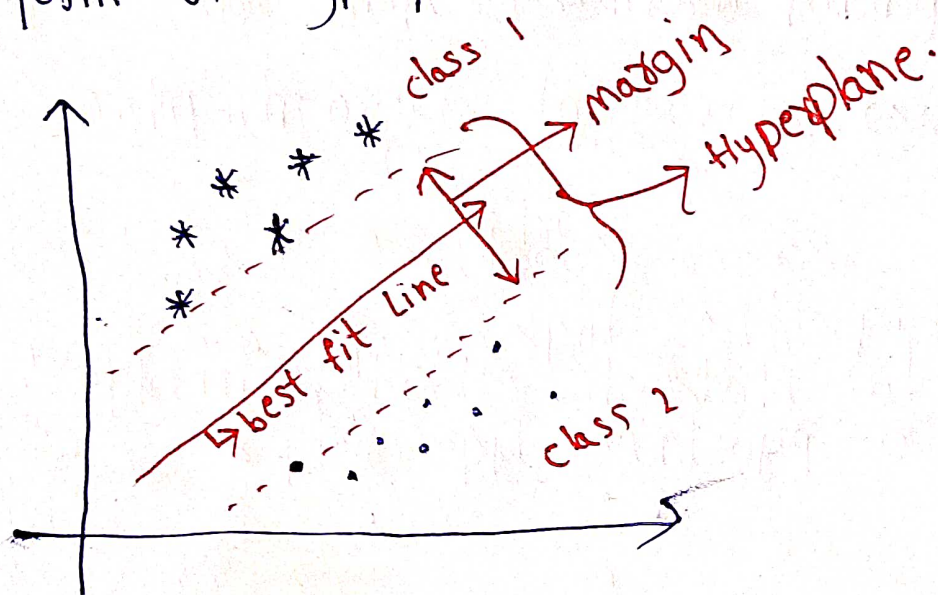 class 1
margin
Hyperplane.
best fit Line
class 2